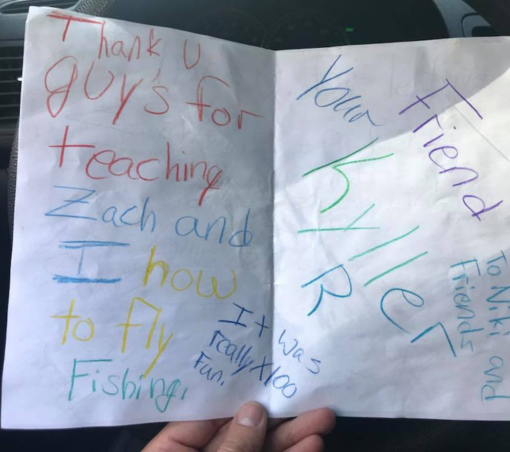 Thank U
guy's for
teaching
Zach and
I how
to fly
Fishing.
It was
really X100
Fun.
Your Friend
Kyller
R
To Niki and
Friends